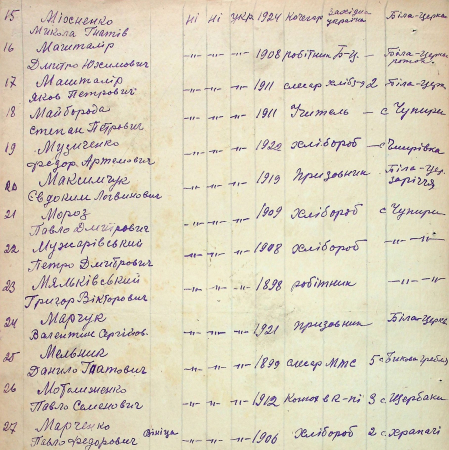 15 Міосненко ні ні укр. 1924 Кочегар західна україна Біла-Церква
Микола Гнатів
16 Машталір -"- -"- -"- 1908 робітник Б-Ц. - Біла-Церква
Дмитро Юхимович
17 Машталір -"- -"- -"- 1911 слесар 2 Біла-Церк
Яков Петрович
18 Майборода -"- -"- -"- 1911 Учитель - с Чупири
Степан Петрович
19 Музиченко -"- -"- -"- 1922 Хлібороб - с
Федор Артемович
20 Максимчук -"- -"- -"- 1919 Призовник - Біла-Цер. заріччя
Євдоким Логвинович
21 Мороз -"- -"- -"- 1909 Хлібороб с Чупири
Павло Дмитрович
22 Мужарівський -"- -"- -"- 1908 Хлібороб -"-"-
Петро Дмитрович
23 Мялківський -"- -"- -"- 1898 робітник -"-"-
Григор Вікторович
24 Марчук -"- -"- -"- 1921 Призовник Біла-Церква
Валентин Сергійов.
25 Мельник -"- -"- -"- 1899 слесар МТС 5 с Бикова Гребля
Данило Гнатович
26 Мотлиженко -"- -"- -"- 1912 Конюх в к-пі 3 с Щербаки
Павло Семенович
27 Марченко -"- -"- 1906 Хлібороб 2 с Храпачі
Павло Федорович Вініца